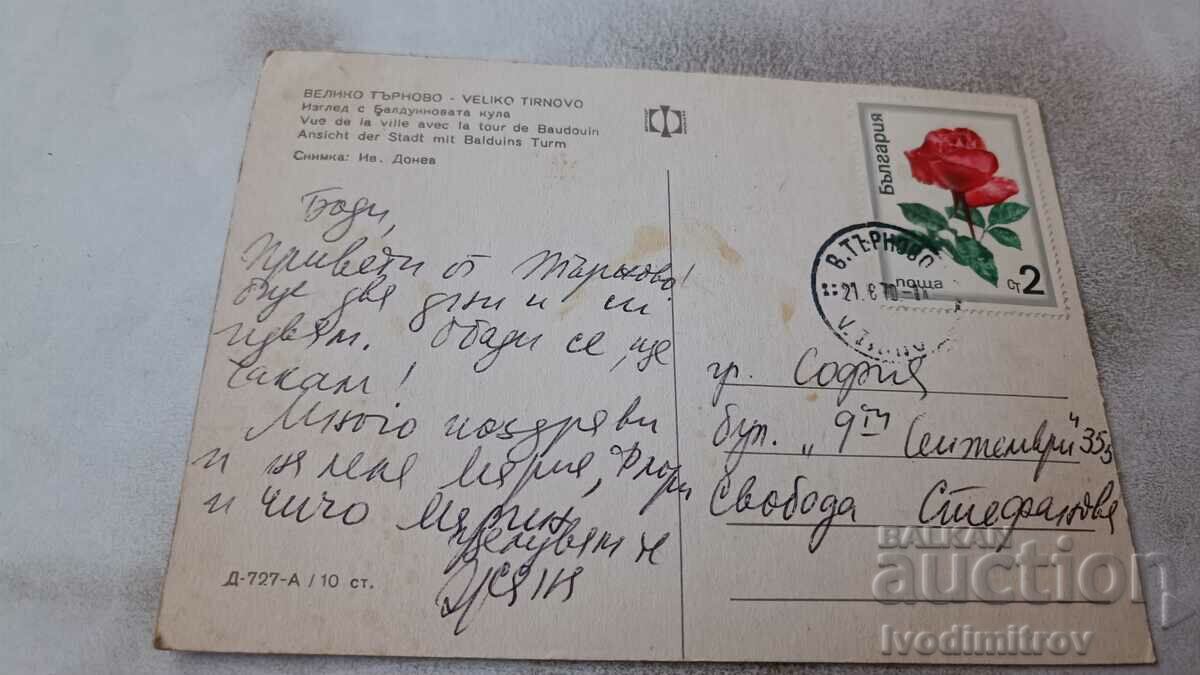 ВЕЛИКО ТЪРНОВО - VELIKO TIRNOVO
Изглед с Балдуиновата кула
Vue de la ville avec la tour de Baudouin
Ansicht der Stadt mit Balduins Turm
Снимка: Ив. Донев
България
поща
2 ст
В. ТЪРНОВО
Боди,
Привети от Търново!
Още два дни и си
идвам. Обади се, ще
чакам!
Много поздрави
и на леля Мария, Флори
и чичо Мартин
целувам те
Жана
Д-727-А / 10 ст.
гр. София
бул. „9ти Септември" 35
Свобода Стефанова
BALKAN
auction
Ivodimitrov